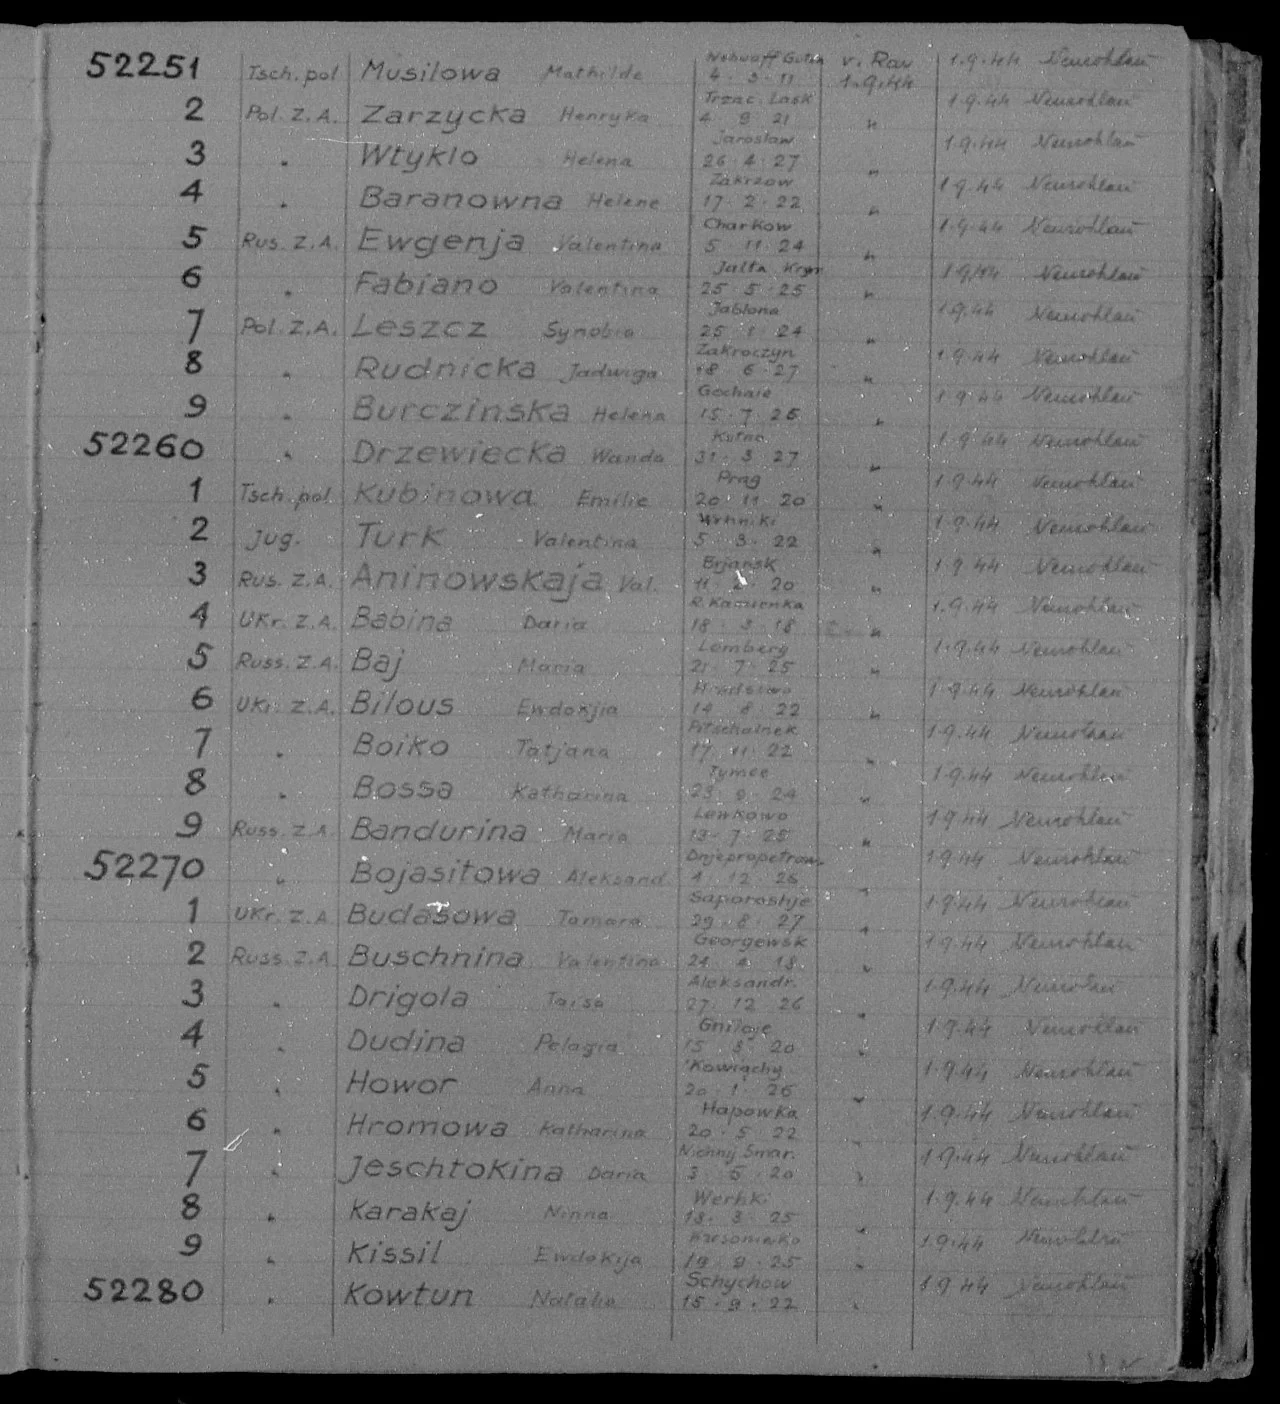 52251 Tsch. pol Musilowa Mathilde 4. 3. 11 v. Rav 1.9.44 1.9.44 Neurohlau
2 Pol. Z.A. Zarzycka Henryka Trzac. Lask 4 9 21 " 1.9.44 Neurohlau
3 " Wtyklo Helena Jaroslaw 26. 4. 27 " 1.9.44 Neurohlau
4 " Baranowna Helene Zakrzow 17. 2. 22 " 1.9.44 Neurohlau
5 Rus. Z.A. Ewgenja Valentina Charkow 5. 11. 24 " 1.9.44 Neurohlau
6 " Fabiano Valentina Jalta Krym 25. 5. 25 " 1.9.44 Neurohlau
7 Pol. Z.A. Leszcz Synobia Jablona 25. 1. 24 " 1.9.44 Neurohlau
8 " Rudnicka Jadwiga Zakroczyn 18 6. 27 " 1.9.44 Neurohlau
9 " Burczinska Helena 15. 7. 26 " 1.9.44 Neurohlau
52260 " Drzewiecka Wanda Kutno 31. 3. 27 " 1.9.44 Neurohlau
1 Tsch. pol. Kubinowa Emilie Prag 20. 11. 20 " 1.9.44 Neurohlau
2 Jug. Turk Valentina Wrhniki 5. 3. 22 " 1.9.44 Neurohlau
3 Rus. Z.A. Aninowskaja Val. Brjansk 11. 2. 20 " 1.9.44 Neurohlau
4 Ukr. Z.A. Babina Daria R. Kamienka 18. 3. 18 " 1.9.44 Neurohlau
5 Russ. Z.A. Baj Maria Lemberg 21. 7. 25 " 1.9.44 Neurohlau
6 Ukr. Z.A. Bilous Ewdokjia 14. 8. 22 " 1.9.44 Neurohlau
7 " Boiko Tatjana 17. 11. 22 " 1.9.44 Neurohlau
8 " Bossa Katharina Tymce 23. 9. 24 " 1.9.44 Neurohlau
9 Russ. Z.A. Bandurina Maria Lewkowo 13. 7. 25 " 1.9.44 Neurohlau
52270 " Bojasitowa Aleksand. Dnjepropetrow. 1. 12. 26 " 1.9.44 Neurohlau
1 Ukr. Z.A. Budasowa Tamara Saporoshje 29. 8. 27 " 1.9.44 Neurohlau
2 Russ. Z.A. Buschnina Valentina Georgewsk 24. 4. 18 " 1.9.44 Neurohlau
3 " Drigola Taisa Aleksandr. 27. 12. 26 " 1.9.44 Neurohlau
4 " Dudina Pelagia Gniloje 15. 3. 20 " 1.9.44 Neurohlau
5 " Howor Anna 20. 1. 26 " 1.9.44 Neurohlau
6 " Hromowa Katharina Hapowka 20. 5. 22 " 1.9.44 Neurohlau
7 " Jeschtokina Daria 3. 5. 20 " 1.9.44 Neurohlau
8 " Karakaj Ninna Werhki 13. 3. 25 " 1.9.44 Neurohlau
9 " Kissil Ewdokija 19. 9. 25 " 1.9.44 Neurohlau
52280 " Kowtun Natalie Schychow 15. 9. 22 " 1.9.44 Neurohlau